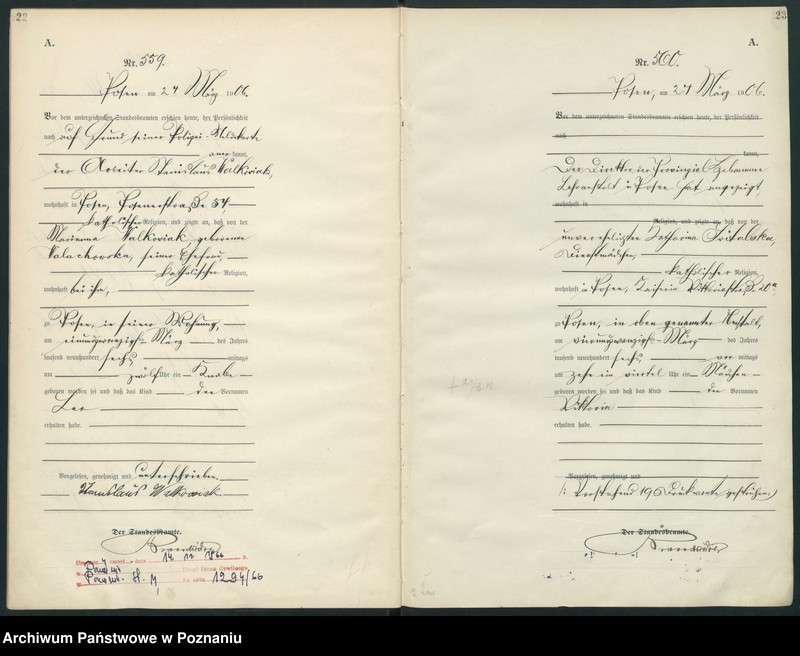 22
A.
Nr. 559.
Posen am 24 März 1906.
Vor dem unterzeichneten Standesbeamten erschien heute, der Persönlichkeit
nach auf Grund seiner Polizei-Meldekarte
kannt,
der Arbeiter Stanislaus Walkowiak,
wohnhaft in Posen, Posenerstraße 54
katholischer Religion, und zeigte an, daß von der
Marianna Walkowiak geborenen
seiner Ehefrau,
katholischer Religion,
wohnhaft bei ihm,
zu Posen, in seiner Wohnung,
am einundzwanzigsten März des Jahres
tausend neunhundert sechs mittags
um zwölf Uhr ein Knabe
geboren worden sei und daß das Kind den Vornamen
Leo
erhalten habe.
Vorgelesen, genehmigt und unterschrieben.
Stanislaus Walkowiak
Der Standesbeamte.
1294/66
23
A.
Nr. 560.
Posen, am 24 März 1906.
Vor dem unterzeichneten Standesbeamten erschien heute, der Persönlichkeit
nach
kannt,
Der Direktor der Provinzial Hebammen
Lehranstalt in Posen hat angezeigt
wohnhaft in
Religion, und zeigte an, daß von der
unverehelichten Katharina
Dienstmädchen,
katholischer Religion,
wohnhaft in Posen, Kaiserin Viktoriastraße 20a,
zu Posen, in oben genannter Anstalt,
am vierundzwanzigsten März des Jahres
tausend neunhundert sechs vor mittags
um zehn ein viertel Uhr ein Mädchen
geboren worden sei und daß das Kind den Vornamen
Viktoria
erhalten habe.
Vorgelesen, genehmigt und
/: Vorstehend 19 Druckworte gestrichen :/
Der Standesbeamte.
Archiwum Państwowe w Poznaniu